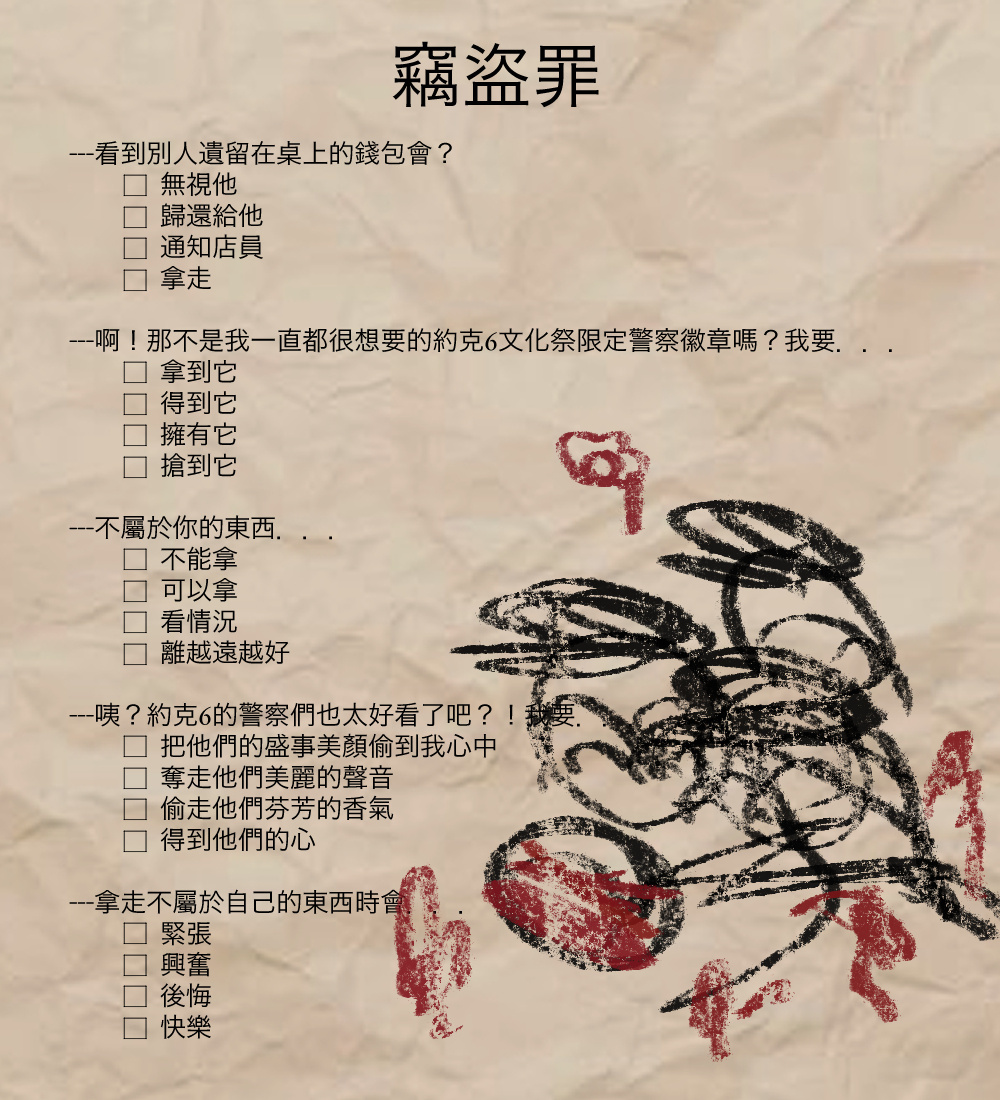 竊盜罪
---看到別人遺留在桌上的錢包會？
□ 無視他
□ 歸還給他
□ 通知店員
□ 拿走
---啊！那不是我一直都很想要的約克6文化祭限定警察徽章嗎？我要. . .
□ 拿到它
□ 得到它
□ 擁有它
□ 搶到它
---不屬於你的東西. . .
□ 不能拿
□ 可以拿
□ 看情況
□ 離越遠越好
---咦？約克6的警察們也太好看了吧？！我要.
□ 把他們的盛事美顏偷到我心中
□ 奪走他們美麗的聲音
□ 偷走他們芬芳的香氣
□ 得到他們的心
---拿走不屬於自己的東西時會. . .
□ 緊張
□ 興奮
□ 後悔
□ 快樂